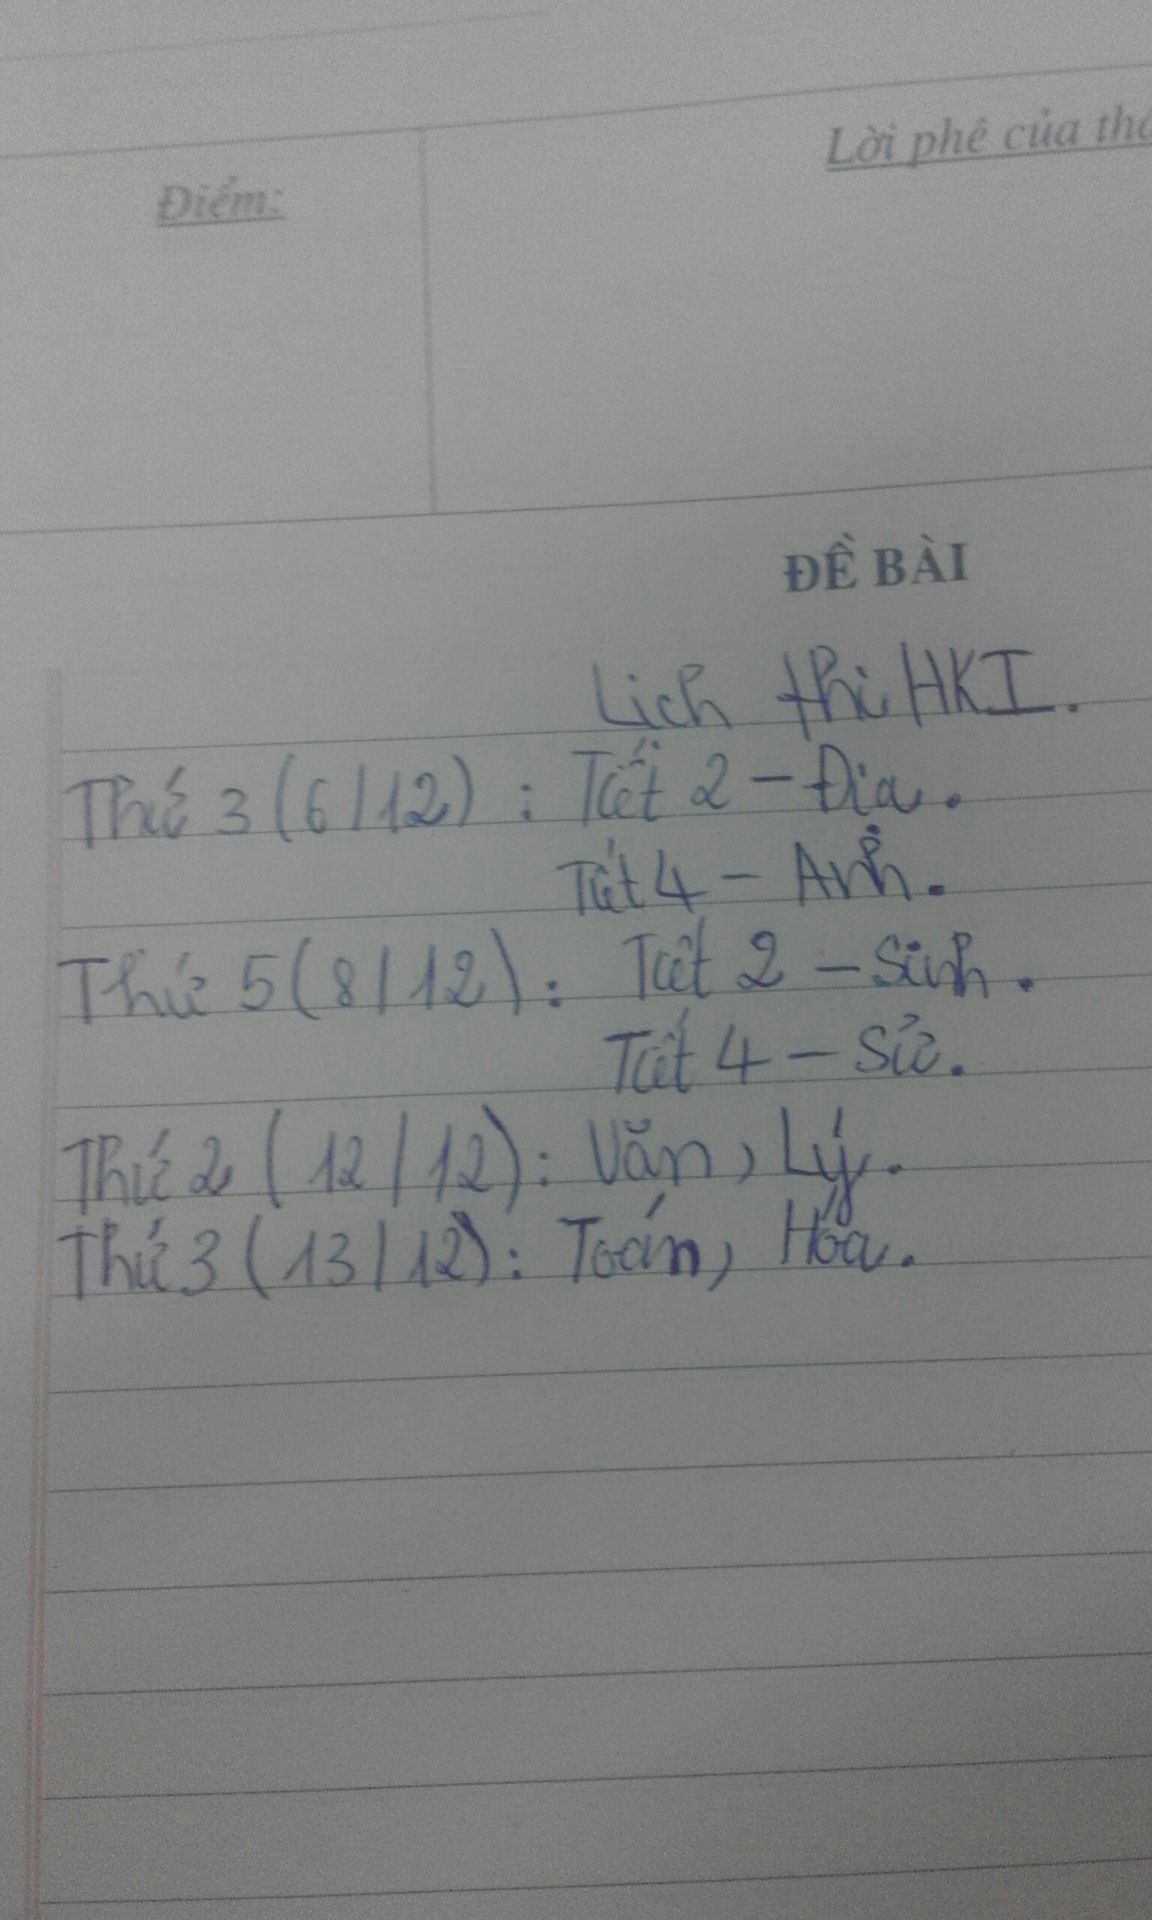 Điểm:
Lời phê của
ĐỀ BÀI
Lịch thi HKI.
Thứ 3 (6/12) : Tiết 2 - Địa.
Tiết 4 - Anh.
Thứ 5 (8/12) : Tiết 2 - Sinh.
Tiết 4 - Sử.
Thứ 2 (12/12) : Văn, Lý.
Thứ 3 (13/12) : Toán, Hóa.